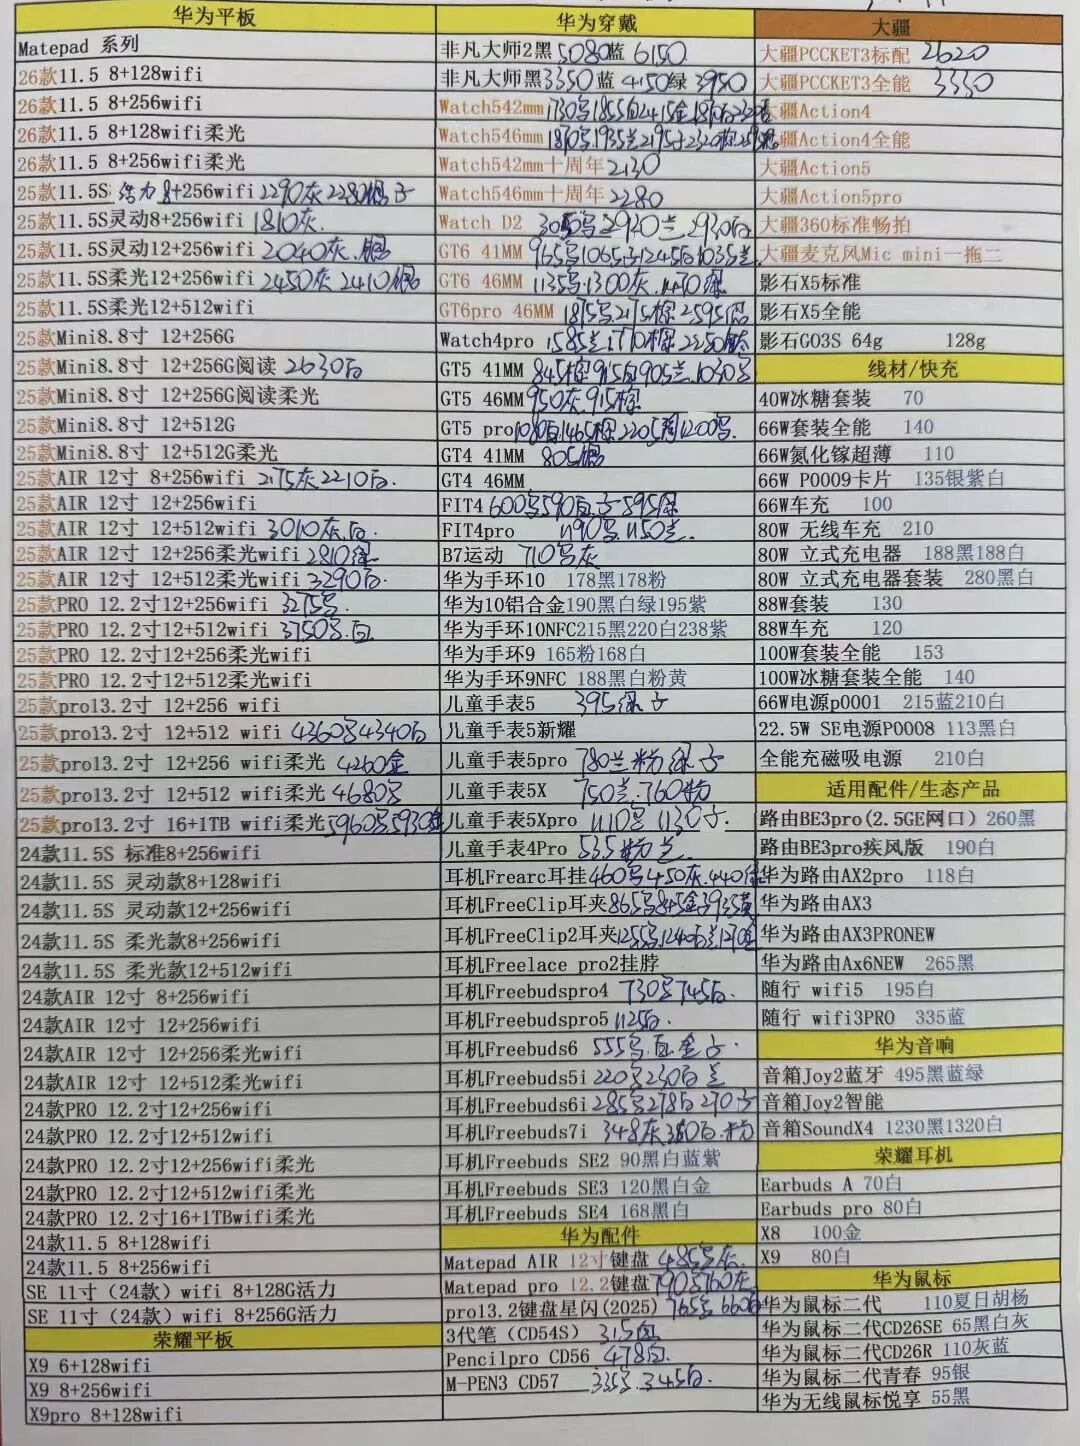 华为平板
Matepad 系列
26款11.5 8+128wifi
26款11.5 8+256wifi
26款11.5 8+128wifi柔光
26款11.5 8+256wifi柔光
25款11.5S 活力8+256wifi 2290灰2280
25款11.5S灵动8+256wifi 1810灰.
25款11.5S灵动12+256wifi 2040灰.
25款11.5S柔光12+256wifi 2450灰 2410
25款11.5S柔光12+512wifi
25款Mini8.8寸 12+256G
25款Mini8.8寸 12+256G阅读 2630白
25款Mini8.8寸 12+256G阅读柔光
25款Mini8.8寸 12+512G
25款Mini8.8寸 12+512G柔光
25款AIR 12寸 8+256wifi 2175灰2210白.
25款AIR 12寸 12+256wifi
25款AIR 12寸 12+512wifi 3010灰.白.
25款AIR 12寸 12+256柔光wifi 2810绿
25款AIR 12寸 12+512柔光wifi 3290白.
25款PRO 12.2寸12+256wifi 3275.
25款PRO 12.2寸12+512wifi 3750.白
25款PRO 12.2寸12+256柔光wifi
25款PRO 12.2寸12+512柔光wifi
25款pro13.2寸 12+256 wifi
25款pro13.2寸 12+512 wifi 4360 4340白
25款pro13.2寸 12+256 wifi柔光 4260金
25款pro13.2寸 12+512 wifi柔光 4680
25款pro13.2寸 16+1TB wifi柔光 5960 5930
24款11.5S 标准8+256wifi
24款11.5S 灵动款8+128wifi
24款11.5S 灵动款12+256wifi
24款11.5S 柔光款8+256wifi
24款11.5S 柔光款12+512wifi
24款AIR 12寸 8+256wifi
24款AIR 12寸 12+256wifi
24款AIR 12寸 12+256柔光wifi
24款AIR 12寸 12+512柔光wifi
24款PRO 12.2寸12+256wifi
24款PRO 12.2寸12+512wifi
24款PRO 12.2寸12+256wifi柔光
24款PRO 12.2寸12+512wifi柔光
24款PRO 12.2寸16+1TBwifi柔光
24款11.5 8+128wifi
24款11.5 8+256wifi
SE 11寸（24款）wifi 8+128G活力
SE 11寸（24款）wifi 8+256G活力
荣耀平板
X9 6+128wifi
X9 8+256wifi
X9pro 8+128wifi
华为穿戴
非凡大师2黑 5080蓝 6150
非凡大师黑3350蓝 4150绿 3950
Watch542mm
Watch546mm
Watch542mm十周年 2130
Watch546mm十周年 2280
Watch D2 2920兰.2930白
GT6 41MM 965 1065 1245白1035兰
GT6 46MM 1135.1300灰.1470绿
GT6pro 46MM 1875.2175棕.2595
Watch4pro 1585兰1710棕.2250
GT5 41MM 845棕915白905兰.1030
GT5 46MM 950灰.915棕
GT5 pro1080白1465棕.2205 1200.
GT4 41MM 805
GT4 46MM
FIT4 600 590白.子595绿
FIT4pro 1190.1150兰.
B7运动 710 灰
华为手环10 178黑178粉
华为10铝合金190黑白绿195紫
华为手环10NFC215黑220白238紫
华为手环9 165粉168白
华为手环9NFC 188黑白粉黄
儿童手表5 395绿 子
儿童手表5新耀
儿童手表5pro 780兰 粉 绿 子
儿童手表5X 750兰.760粉
儿童手表5Xpro 1110 1130子.
儿童手表4Pro 535粉 兰
耳机Frearc耳挂460 450灰.440绿
耳机FreeClip耳夹865 845金 935
耳机FreeClip2耳夹1255 1240白兰1270
耳机Freelace pro2挂脖
耳机Freebudspro4 730 745白.
耳机Freebudspro5 1125白.
耳机Freebuds6 555.白 金 子.
耳机Freebuds5i 220 230白 兰
耳机Freebuds6i 285 278白 270子
耳机Freebuds7i 348灰350白.粉
耳机Freebuds SE2 90黑白蓝紫
耳机Freebuds SE3 120黑白金
耳机Freebuds SE4 168黑白
华为配件
Matepad AIR 12寸键盘 485 灰.
Matepad pro 12.2键盘790 760灰
pro13.2键盘星闪(2025) 765 660白
3代笔（CD54S） 315白
Pencilpro CD56 478白.
M-PEN3 CD57 335 345白.
大疆
大疆PCCKET3标配 2620
大疆PCCKET3全能 3330
大疆Action4
大疆Action4全能
大疆Action5
大疆Action5pro
大疆360标准畅拍
大疆麦克风Mic mini一拖二
影石X5标准
影石X5全能
影石GO3S 64g 128g
线材/快充
40W冰糖套装 70
66W套装全能 140
66W氮化镓超薄 110
66W P0009卡片 135银紫白
66W车充 100
80W 无线车充 210
80W 立式充电器 188黑188白
80W 立式充电器套装 280黑白
88W套装 130
88W车充 120
100W套装全能 153
100W冰糖套装全能 140
66W电源p0001 215蓝210白
22.5W SE电源P0008 113黑白
全能充磁吸电源 210白
适用配件/生态产品
路由BE3pro(2.5GE网口) 260黑
路由BE3pro疾风版 190白
华为路由AX2pro 118白
华为路由AX3
华为路由AX3PRONEW
华为路由Ax6NEW 265黑
随行 wifi5 195白
随行 wifi3PRO 335蓝
华为音响
音箱Joy2蓝牙 495黑蓝绿
音箱Joy2智能
音箱SoundX4 1230黑1320白
荣耀耳机
Earbuds A 70白
Earbuds pro 80白
X8 100金
X9 80白
华为鼠标
华为鼠标二代 110夏日胡杨
华为鼠标二代CD26SE 65黑白灰
华为鼠标二代CD26R 110灰蓝
华为鼠标二代青春 95银
华为无线鼠标悦享 55黑